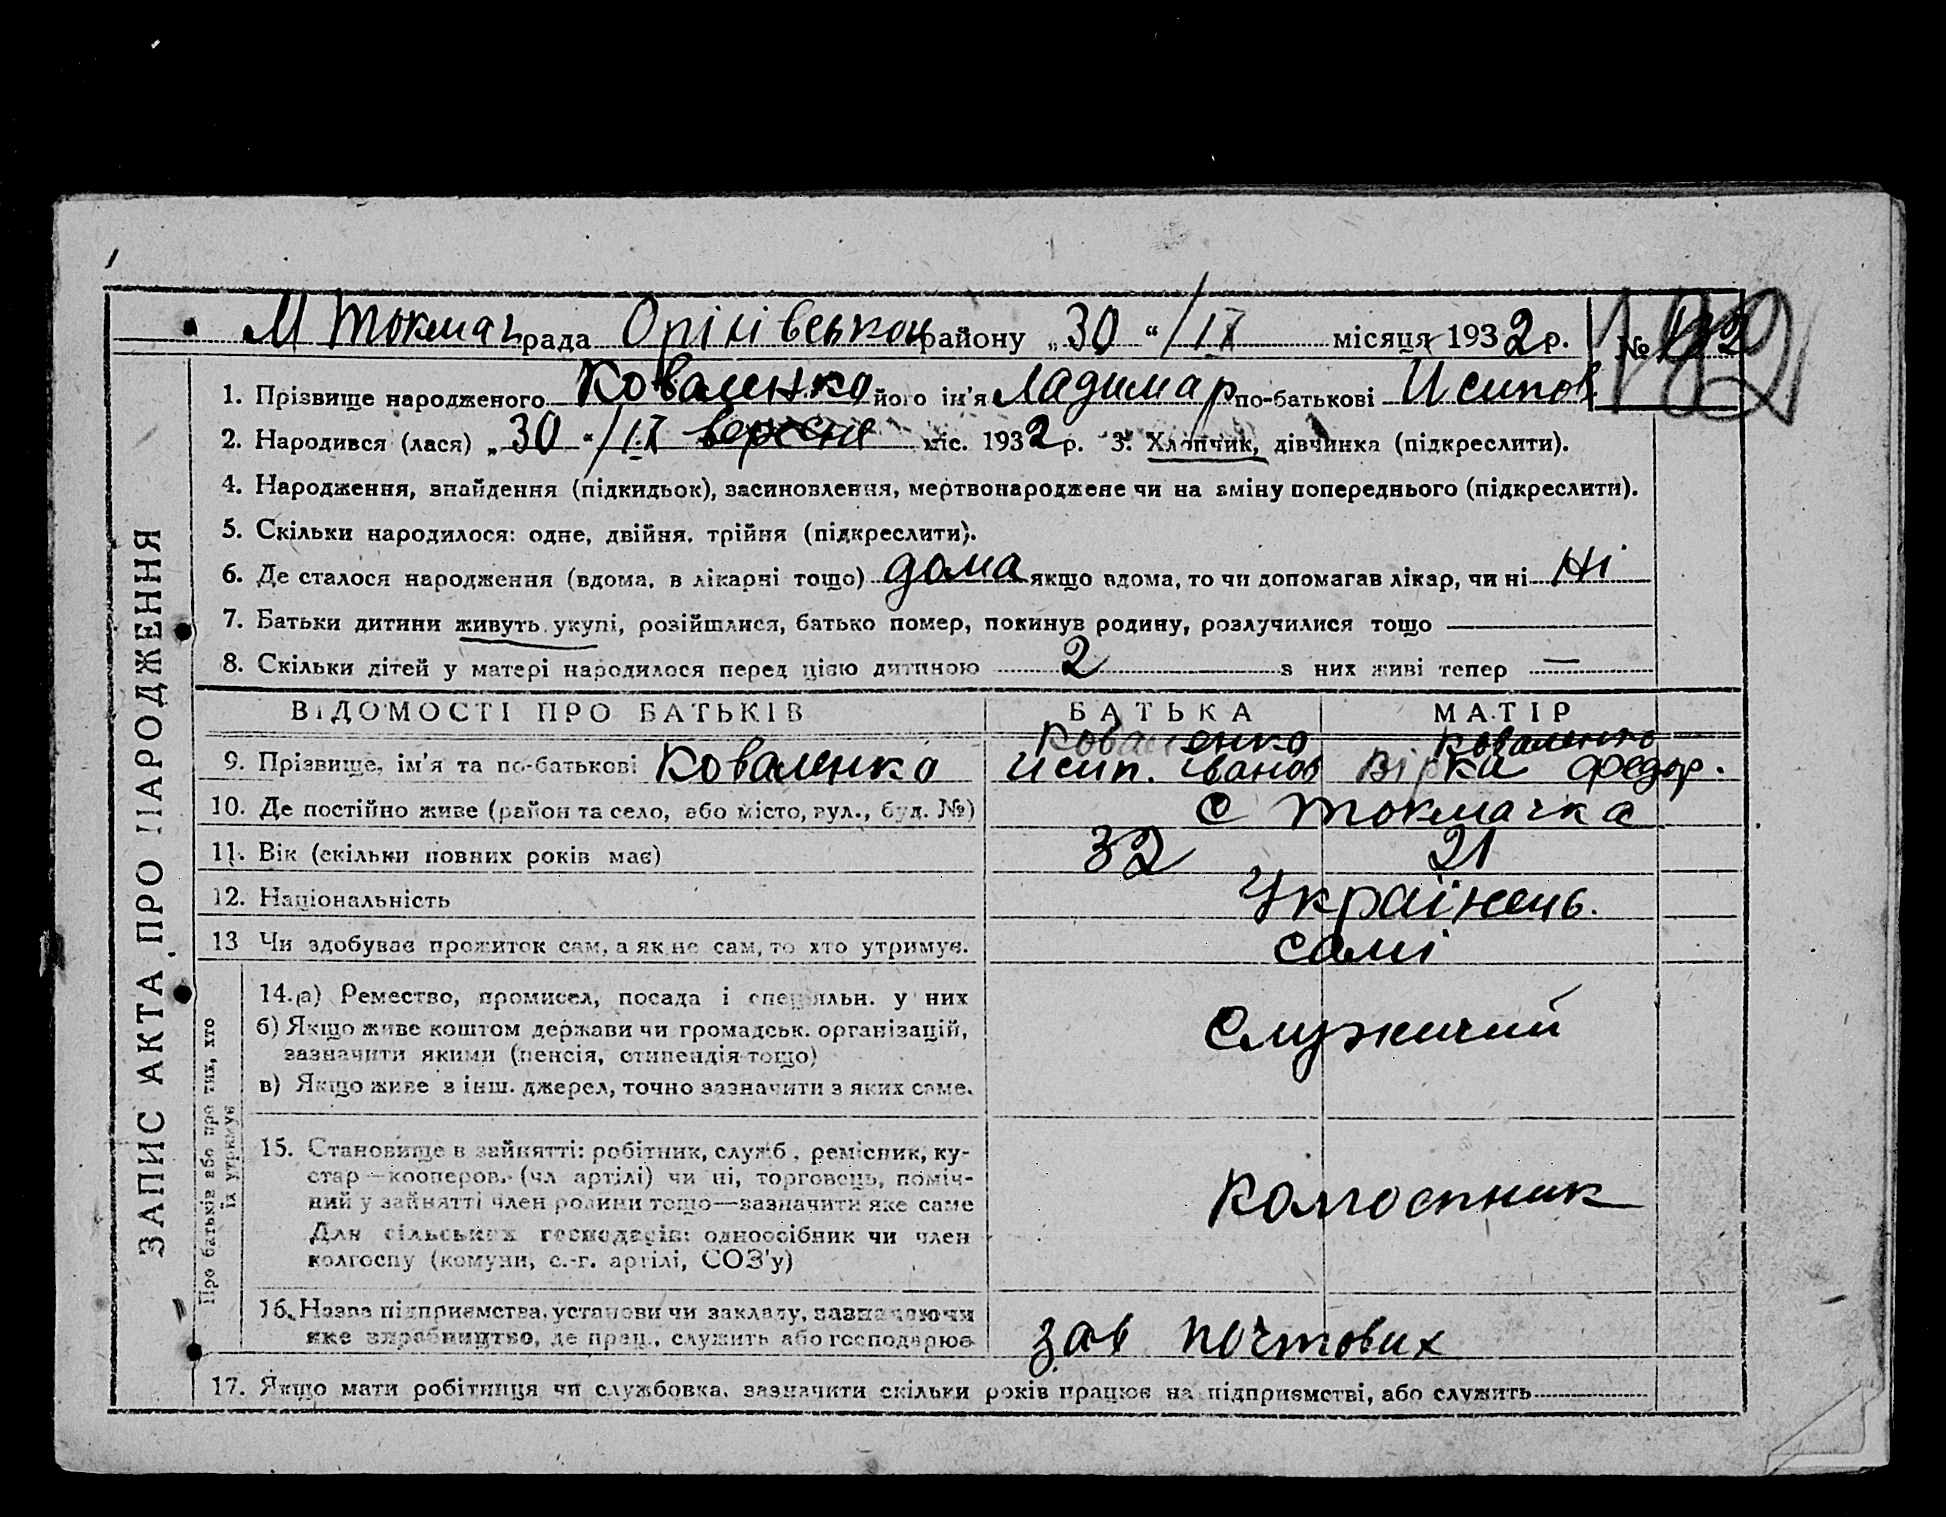 М Токмач рада Орiхiвською району „30“ /IX місяця 1932 р. № 132 182
1. Прізвище народженого Коваленко його ім'я Ладимар по-батькові Исипов
2. Народився (лася) „30“ /IX вересня міс. 1932 р. 3. Хлопчик, дівчинка (підкреслити).
4. Народження, знайдення (підкидьок), засиновлення, мертвонароджене чи на зміну попереднього (підкреслити).
5. Скільки народилося: одне, двійня, трійня (підкреслити).
6. Де сталося народження (вдома, в лікарні тощо) дома якщо вдома, то чи допомагав лікар, чи ні Ні
7. Батьки дитини живуть укупі, розійшлися, батько помер, покинув родину, розлучилися тощо
8. Скільки дітей у матері народилося перед цією дитиною 2 з них живі тепер —
ВІДОМОСТІ ПРО БАТЬКІВ БАТЬКА МАТІР
Коваленко Коваленко
9. Прізвище, ім'я та по-батькові Коваленко Исип. Іванов Вірка Федор.
10. Де постійно живе (район та село, або місто, вул., буд. №) с Токмачка
11. Вік (скільки повних років має) 32 21
12. Національність Українець.
13 Чи здобуває прожиток сам, а як не сам, то хто утримує. самі
14. а) Ремество, промисел, посада і спеціяльн. у них
б) Якщо живе коштом держави чи громадськ. організацій, служачий
зазначити якими (пенсія, стипендія тощо)
в) Якщо живе з інш. джерел, точно зазначити з яких саме.
15. Становище в зайнятті: робітник, служб., ремісник, ку-
стар—кооперов. (чл артілі) чи ні, торговець, поміч-
ний у зайнятті член родини тощо—зазначити яке саме колгоспник
Для сільських господарів: одноосібник чи член
колгоспу (комуни, с.-г. артілі, СОЗ'у)
16. Назва підприємства, установи чи закладу, зазначаючи
яке виробництво, де прац., служить або господарює зав почтових
17. Якщо мати робітниця чи службовка, зазначити скільки років працює на підприємстві, або служить
ЗАПИС АКТА ПРО НАРОДЖЕННЯ
Про батьків або про тих, хто
їх утримує